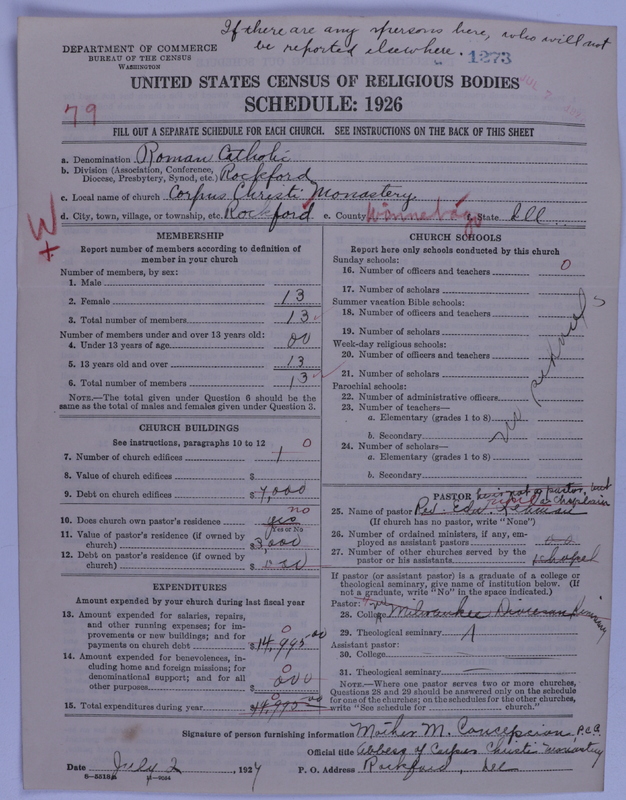 If there are any persons here, who will not
be reported elsewhere.
1273
DEPARTMENT OF COMMERCE
BUREAU OF THE CENSUS
WASHINGTON
UNITED STATES CENSUS OF RELIGIOUS BODIES
SCHEDULE: 1926
79
FILL OUT A SEPARATE SCHEDULE FOR EACH CHURCH. SEE INSTRUCTIONS ON THE BACK OF THIS SHEET
a. Denomination Roman Catholic
b. Division (Association, Conference, Diocese, Presbytery, Synod, etc.) Rockford
c. Local name of church Corpus Christi Monastery
d. City, town, village, or township, etc. Rockford e. County Winnebago f. State Ill.
W
+
MEMBERSHIP
Report number of members according to definition of
member in your church
Number of members, by sex:
1. Male
2. Female 13
3. Total number of members 13
Number of members under and over 13 years old:
4. Under 13 years of age 00
5. 13 years old and over 13
6. Total number of members 13
NOTE.—The total given under Question 6 should be the
same as the total of males and females given under Question 3.
CHURCH BUILDINGS
See instructions, paragraphs 10 to 12 0
7. Number of church edifices 1
8. Value of church edifices $
9. Debt on church edifices $7,000
no
10. Does church own pastor's residence yes
Yes or No
11. Value of pastor's residence (if owned by
church) $3,000
12. Debt on pastor's residence (if owned by
church) $
EXPENDITURES
Amount expended by your church during last fiscal year
13. Amount expended for salaries, repairs,
and other running expenses; for im-
provements or new buildings; and for
payments on church debt $14,995.00 0
14. Amount expended for benevolences, in-
cluding home and foreign missions; for
denominational support; and for all
other purposes $ 000 0
15. Total expenditures during year $14,995.00 0
CHURCH SCHOOLS
Report here only schools conducted by this church
Sunday schools:
16. Number of officers and teachers 0
17. Number of scholars
Summer vacation Bible schools:
18. Number of officers and teachers
19. Number of scholars
Week-day religious schools:
20. Number of officers and teachers
21. Number of scholars
Parochial schools:
22. Number of administrative officers
23. Number of teachers—
a. Elementary (grades 1 to 8)
b. Secondary
24. Number of scholars—
a. Elementary (grades 1 to 8)
b. Secondary
no schools
PASTOR he is not a pastor, but
a Chaplain
25. Name of pastor Rev. Edw.
(If church has no pastor, write "None")
26. Number of ordained ministers, if any, em-
ployed as assistant pastors
27. Number of other churches served by the
pastor or his assistants chapel
If pastor (or assistant pastor) is a graduate of a college or
theological seminary, give name of institution below. (If
not a graduate, write "No" in the space indicated.)
Pastor:
28. College Milwaukee Diocesan Seminary
29. Theological seminary
Assistant pastor:
30. College
31. Theological seminary
NOTE.—Where one pastor serves two or more churches,
Questions 28 and 29 should be answered only on the schedule
for one of the churches; on the schedules for the other churches,
write "See schedule for church."
Signature of person furnishing information Mother M. Concepcion P.C.C.
Official title Abbess of Corpus Christi Monastery
Date July 2, 1927 P. O. Address Rockford, Ill